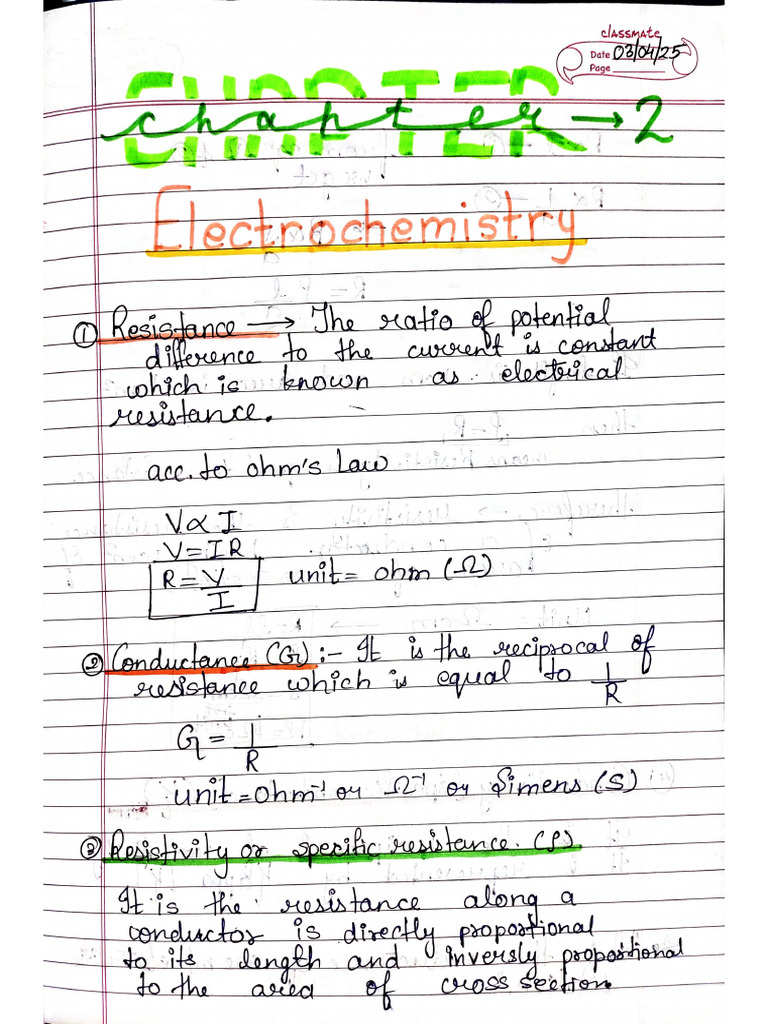 classmate
Date 03/04/25
Page
CHAPTER
chapter → 2
Electrochemistry
① Resistance → The ratio of potential
difference to the current is constant
which is known as electrical
resistance.
acc. to ohm's Law
V ∝ I
V = IR
R = V/I unit = ohm (Ω)
② Conductance (G) :- It is the reciprocal of
resistance which is equal to 1/R
G = 1/R
unit = Ohm⁻¹ or Ω⁻¹ or Simens (S)
③ Resistivity or specific resistance. (ρ)
It is the resistance along a
conductor is directly proportional
to its length and inversly proportional
to the area of cross section.